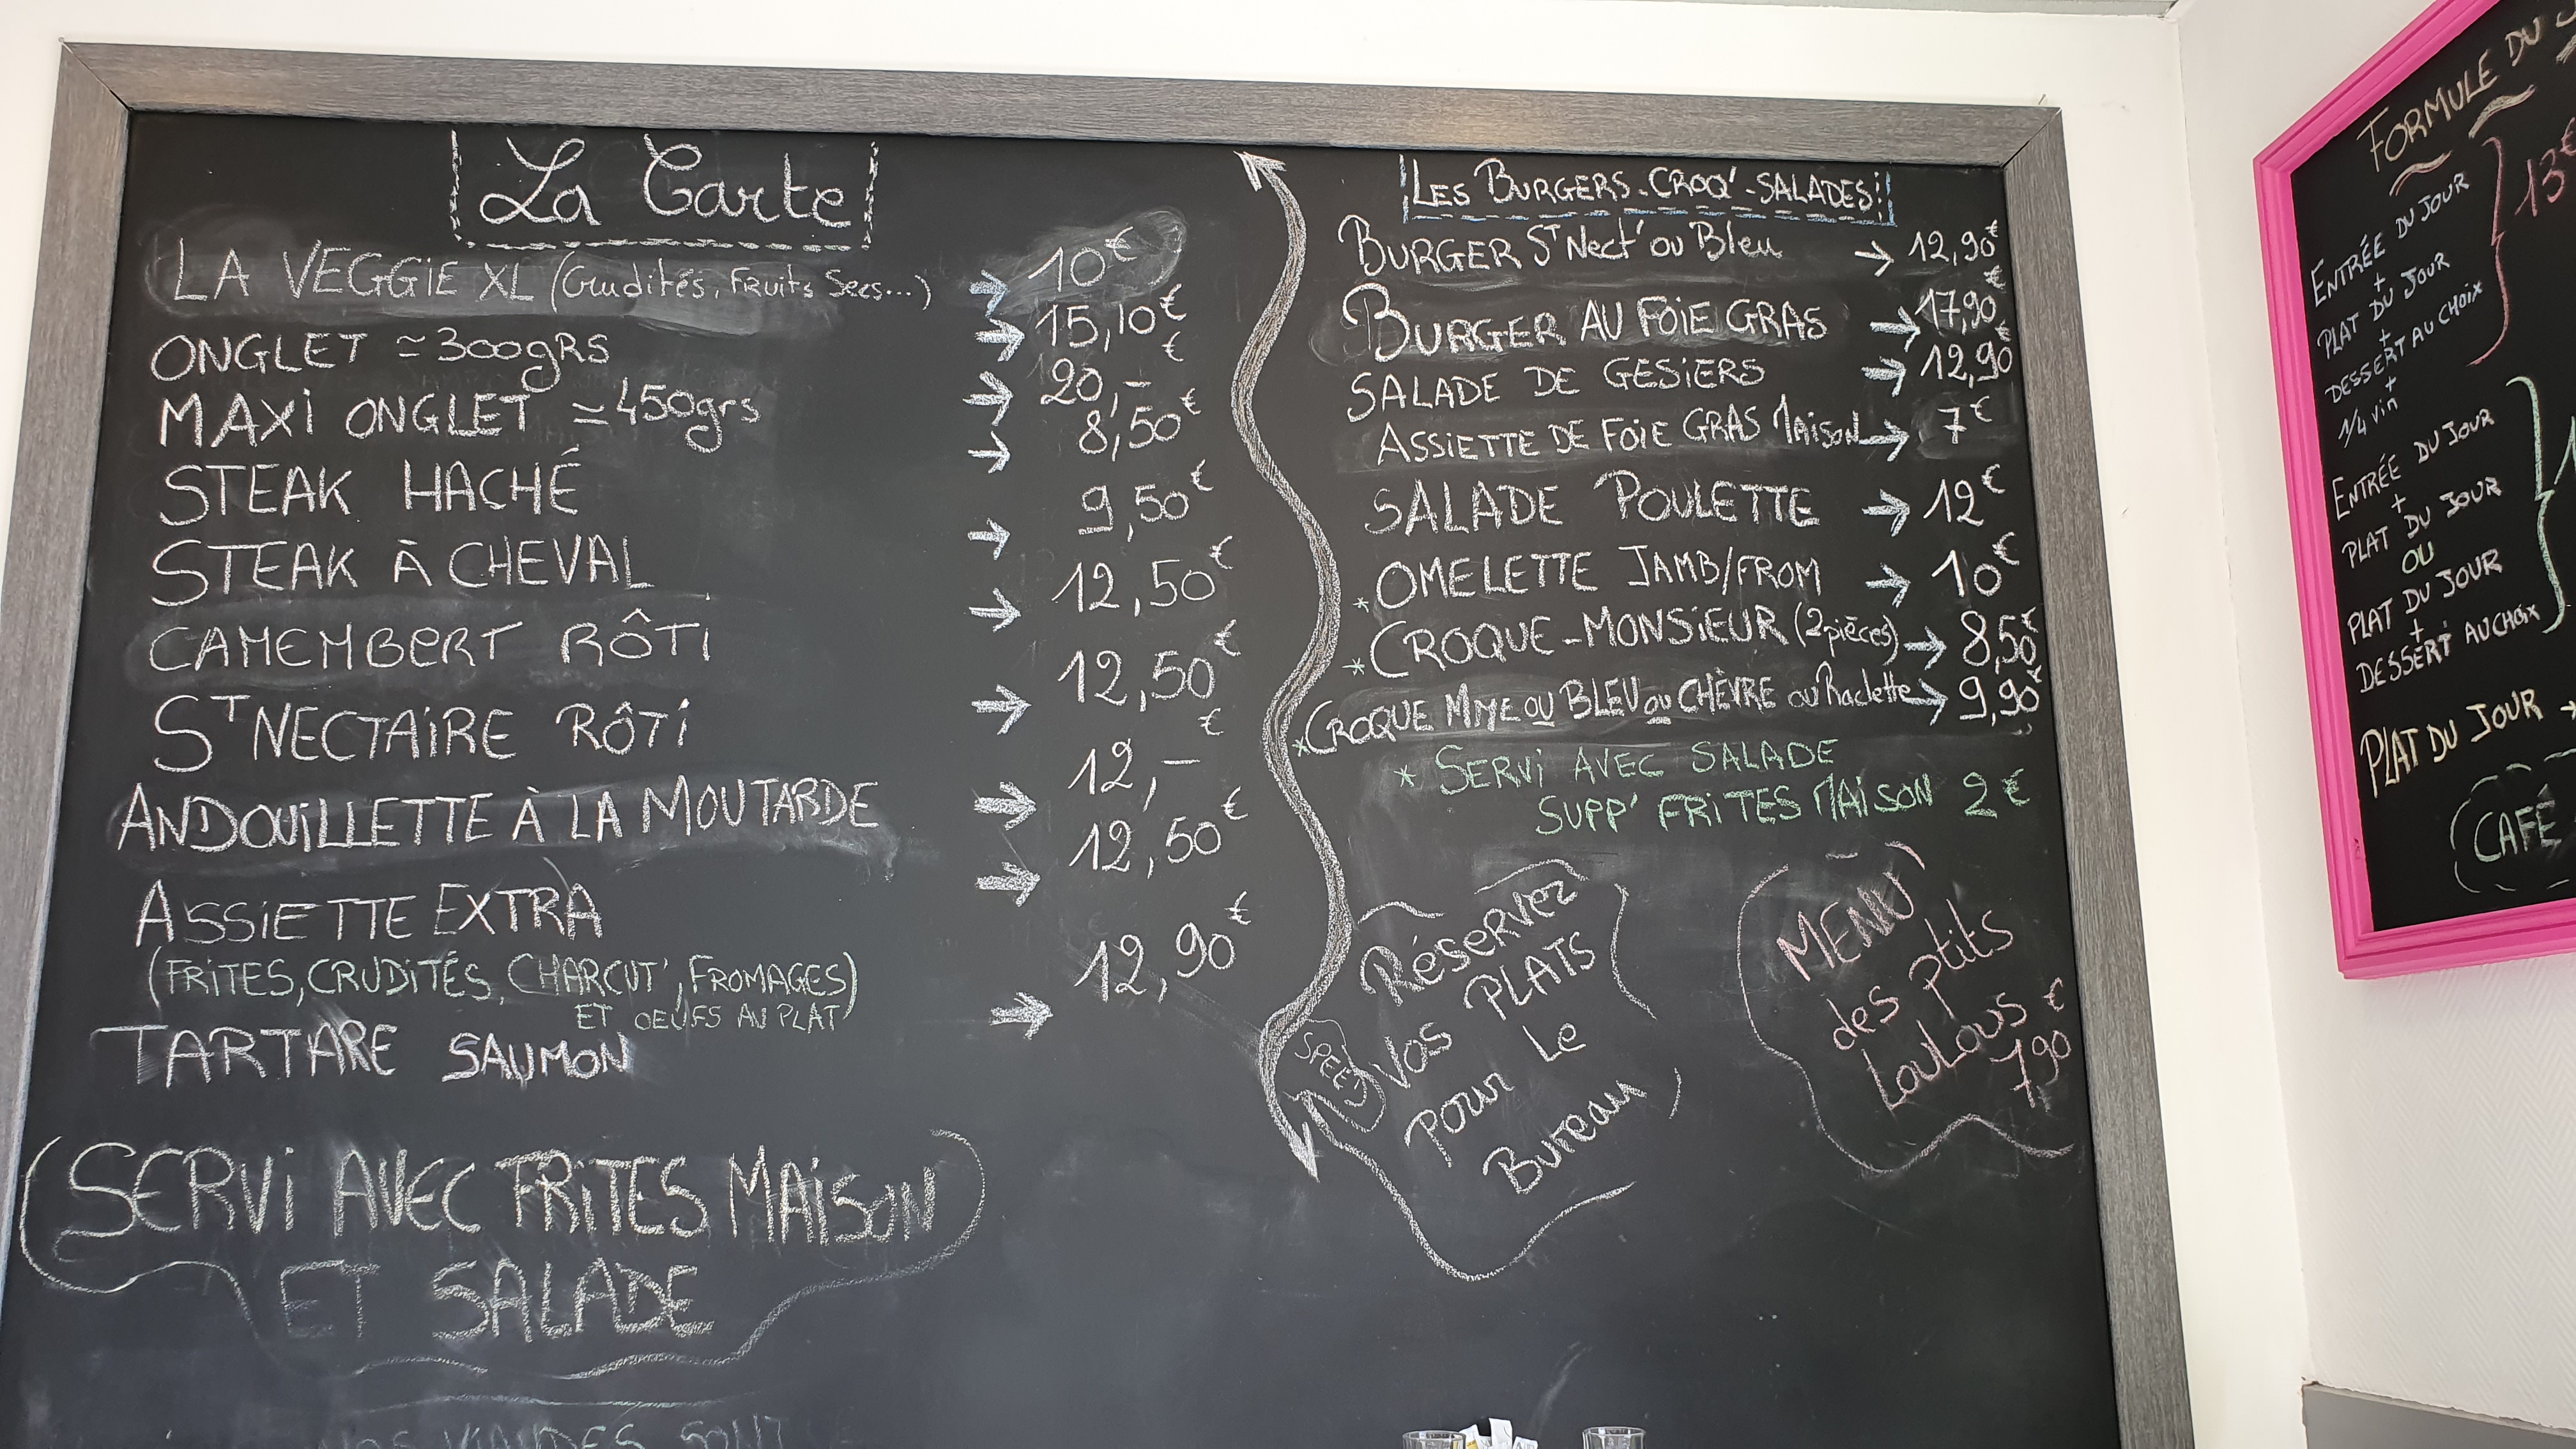 La Carte
LA VEGGIE XL (Crudités, Fruits Secs...) → 10€
ONGLET ≃ 300grs → 15,10€
MAXI ONGLET ≃ 450grs → 20,-€
STEAK HACHÉ → 8,50€
STEAK À CHEVAL → 9,50€
CAMEMBERT RÔTI → 12,50€
ST NECTAIRE RÔTI → 12,50€
ANDOUILLETTE À LA MOUTARDE → 12,-€
ASSIETTE EXTRA → 12,50€
(FRITES, CRUDITÉS, CHARCUT', FROMAGES)
ET OEUFS AU PLAT)
TARTARE SAUMON → 12,90€
SERVI AVEC FRITES MAISON
ET SALADE
NOS VIANDES SONT
LES BURGERS-CROQ'-SALADES
BURGER ST Nect' ou Bleu → 12,90€
BURGER AU FOIE GRAS → 17,90€
SALADE DE GESIERS → 12,90€
ASSIETTE DE FOIE GRAS MAISON → 7€
SALADE POULETTE → 12€
* OMELETTE JAMB/FROM → 10€
* CROQUE-MONSIEUR (2 pièces) → 8,50€
* CROQUE MME OU BLEU ou CHÈVRE ou Raclette → 9,90€
* SERVI AVEC SALADE
SUPP' FRITES MAISON 2€
Réservez
VOS PLATS
pour Le
Bureau
MENU
des ptits
LouLous
7,90€
FORMULE DU
ENTRÉE DU JOUR
+
PLAT DU JOUR
+
DESSERT AU CHOIX
+
1/4 vin
13€
ENTRÉE DU JOUR
+
PLAT DU JOUR
OU
PLAT DU JOUR
+
DESSERT AU CHOIX
PLAT DU JOUR →
CAFÉ